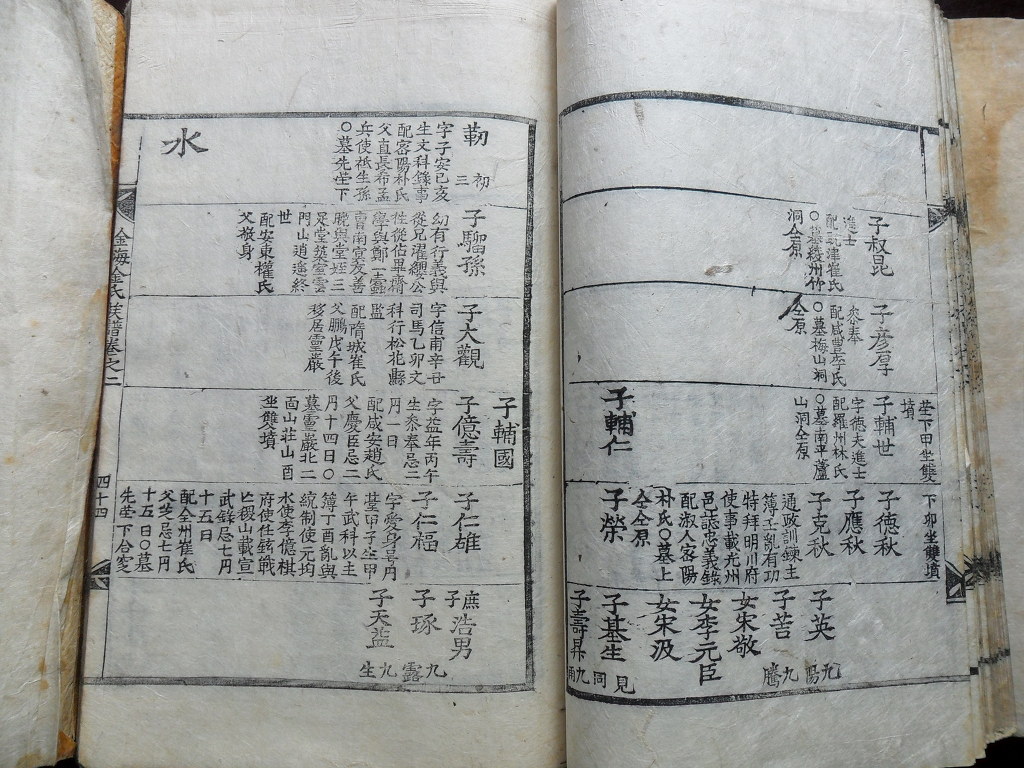 子叔昆
進士
洞仝原
子彦厚
參奉
配咸豊李氏
○墓梅山洞
仝原
墳
子輔世
字德夫進士
配羅州林氏
○墓南平蘆
山洞仝原
子輔仁
下卯坐雙墳
子德秋
子應秋
子克秋
通政訓鍊主
簿壬亂有功
特拜明川府
使事載光州
邑誌忠義錄
配淑人密陽
朴氏○墓上
仝仝原
子榮
子英
九陽
子苦
九騰
女宋敬
女李元臣
女宋汲
子基生
見同
子壽昇
九雨
靭
初三
字子安已亥
生文科錄事
配密陽朴氏
父直長希孟
兵使祗生孫
○墓先塋下
子騮孫
幼有行義與
從兄濯纓公
學與鄭一蠹
曺南冥友善
門山逍遙終
世
配安東權氏
父敬身
子大觀
司馬乙卯文
科行松北縣
監
配隋城崔氏
父鵬戊午後
移居靈巖
子輔國
子億壽
字益年丙午
生參奉忌二
月一日
配咸安趙氏
父慶臣忌二
月十四日○
墓靈巖北二
面山莊山酉
坐雙墳
子仁雄
子仁福
午武科以主
簿丁酉亂與
統制使元均
水使李億祺
府使任鉉戰
亡
武錄忌七月
十五日
配全州崔氏
十五日○墓
先塋下合窆
庶子浩男
子琢
九露
子天益
九生
水
金海金氏族譜卷之二
四十四